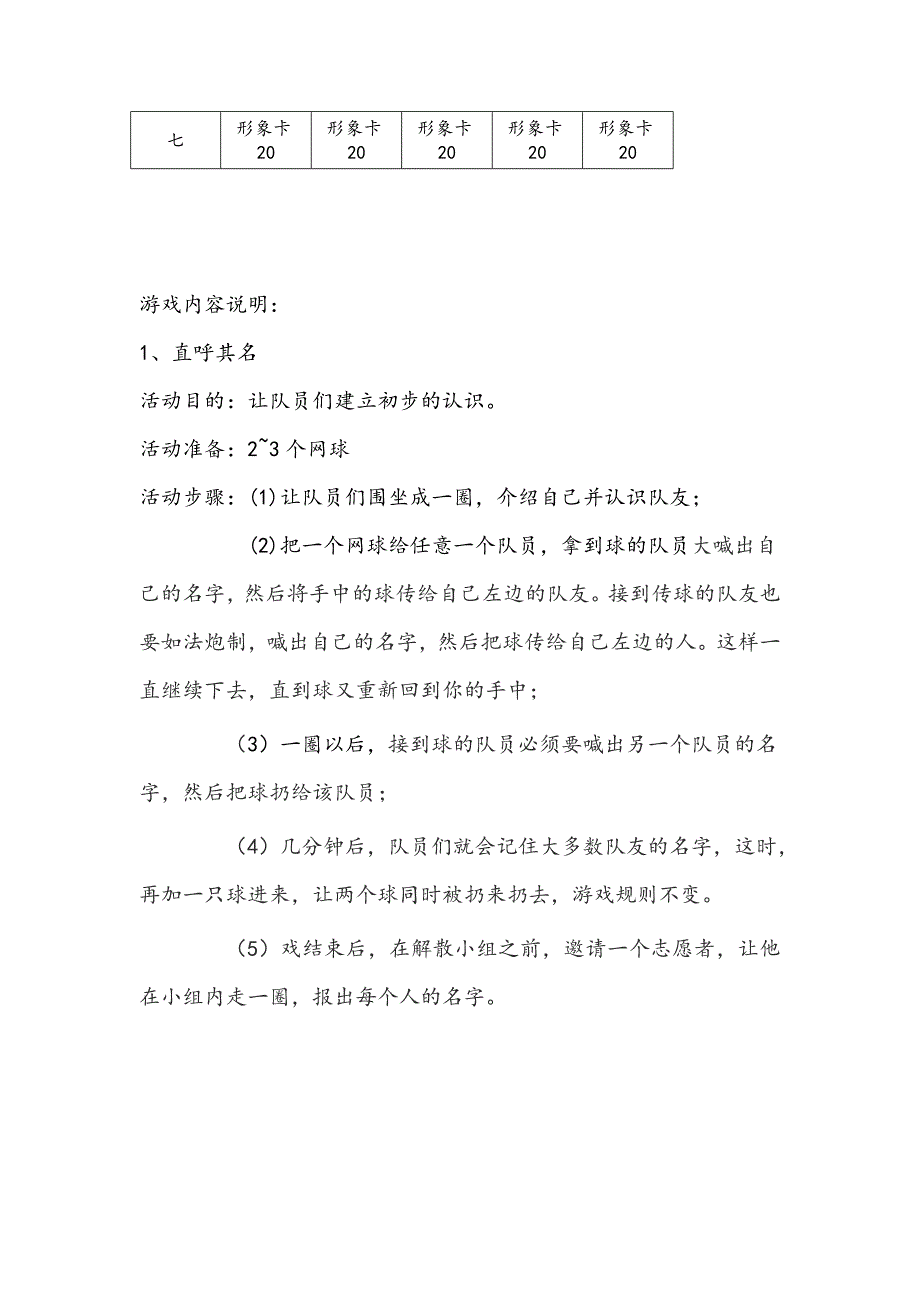 七 形象卡 形象卡 形象卡 形象卡 形象卡
20 20 20 20 20
游戏内容说明：
1、直呼其名
活动目的：让队员们建立初步的认识。
活动准备：2~3个网球
活动步骤：(1)让队员们围坐成一圈，介绍自己并认识队友；
(2)把一个网球给任意一个队员，拿到球的队员大喊出自
己的名字，然后将手中的球传给自己左边的队友。接到传球的队友也
要如法炮制，喊出自己的名字，然后把球传给自己左边的人。这样一
直继续下去，直到球又重新回到你的手中；
（3）一圈以后，接到球的队员必须要喊出另一个队员的名
字，然后把球扔给该队员；
（4）几分钟后，队员们就会记住大多数队友的名字，这时，
再加一只球进来，让两个球同时被扔来扔去，游戏规则不变。
（5）戏结束后，在解散小组之前，邀请一个志愿者，让他
在小组内走一圈，报出每个人的名字。